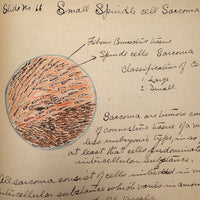 Slide No 16 Small Spindle cell Sarcoma
Fibrous Connective tissue
Spindle cells Sarcoma
Classification of
1 Large
2 Small.
Sarcoma are tumors com
of connective tissue
also embryonic type, in so
at least that cells predominate
intercellular substance.
All sarcoma consist of cells imbedded in
intercellular substance which varies in amount
Vessels